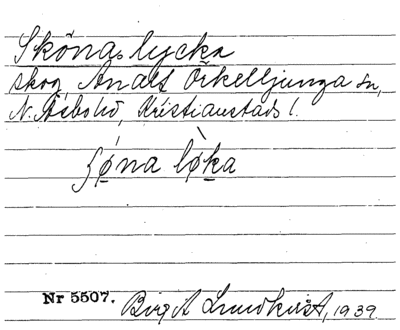 Sköna lycka
skog Analt Örkelljunga sn,
N. Åsbo hd, Kristianstads l.
ʃǿna lø̀ka
Nr 5507. Birgit Lundkvist, 1939